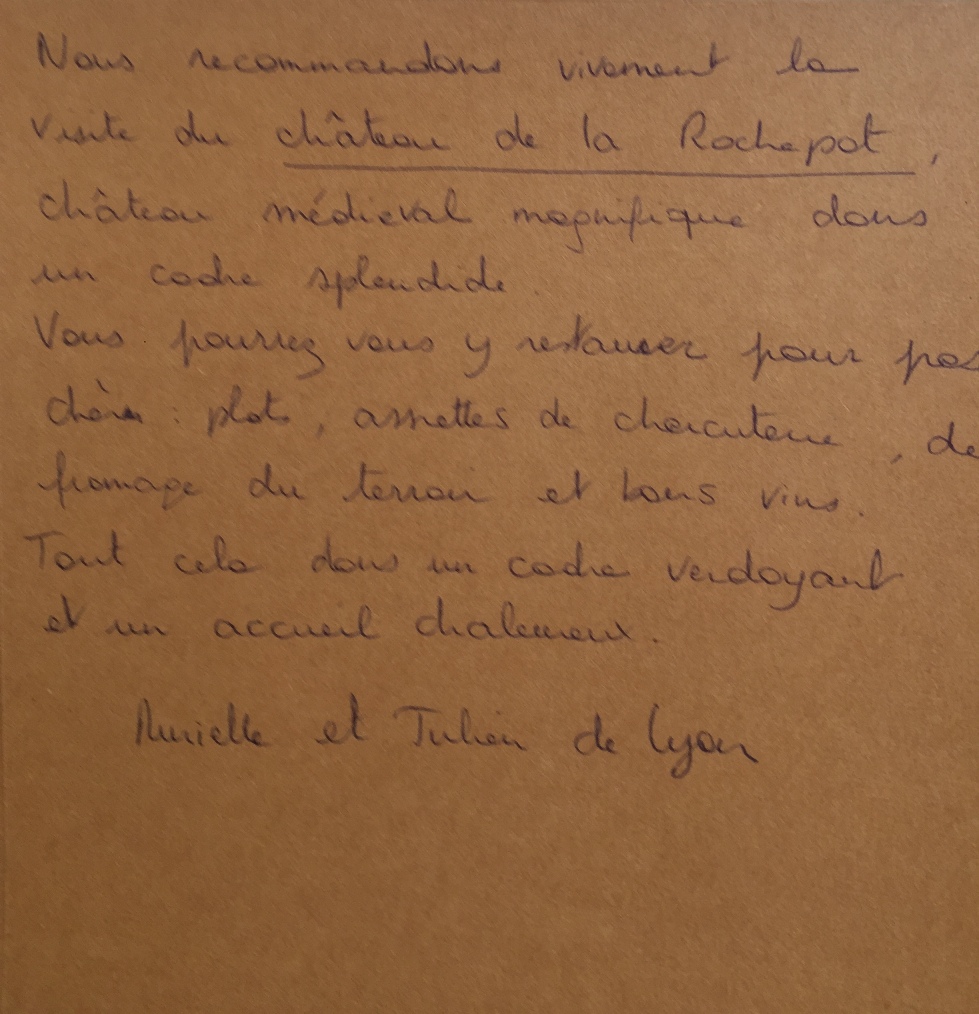 Nous recommandons vivement la
visite du château de la Rochepot,
château médieval magnifique dans
un cadre splendide.
Vous pourrez vous y restaurer pour pas
chère : plats, assiettes de charcuterie, de
fromage du terroir et bons vins.
Tout cela dans un cadre verdoyant
et un accueil chaleureux.
Murielle et Julien de Lyon